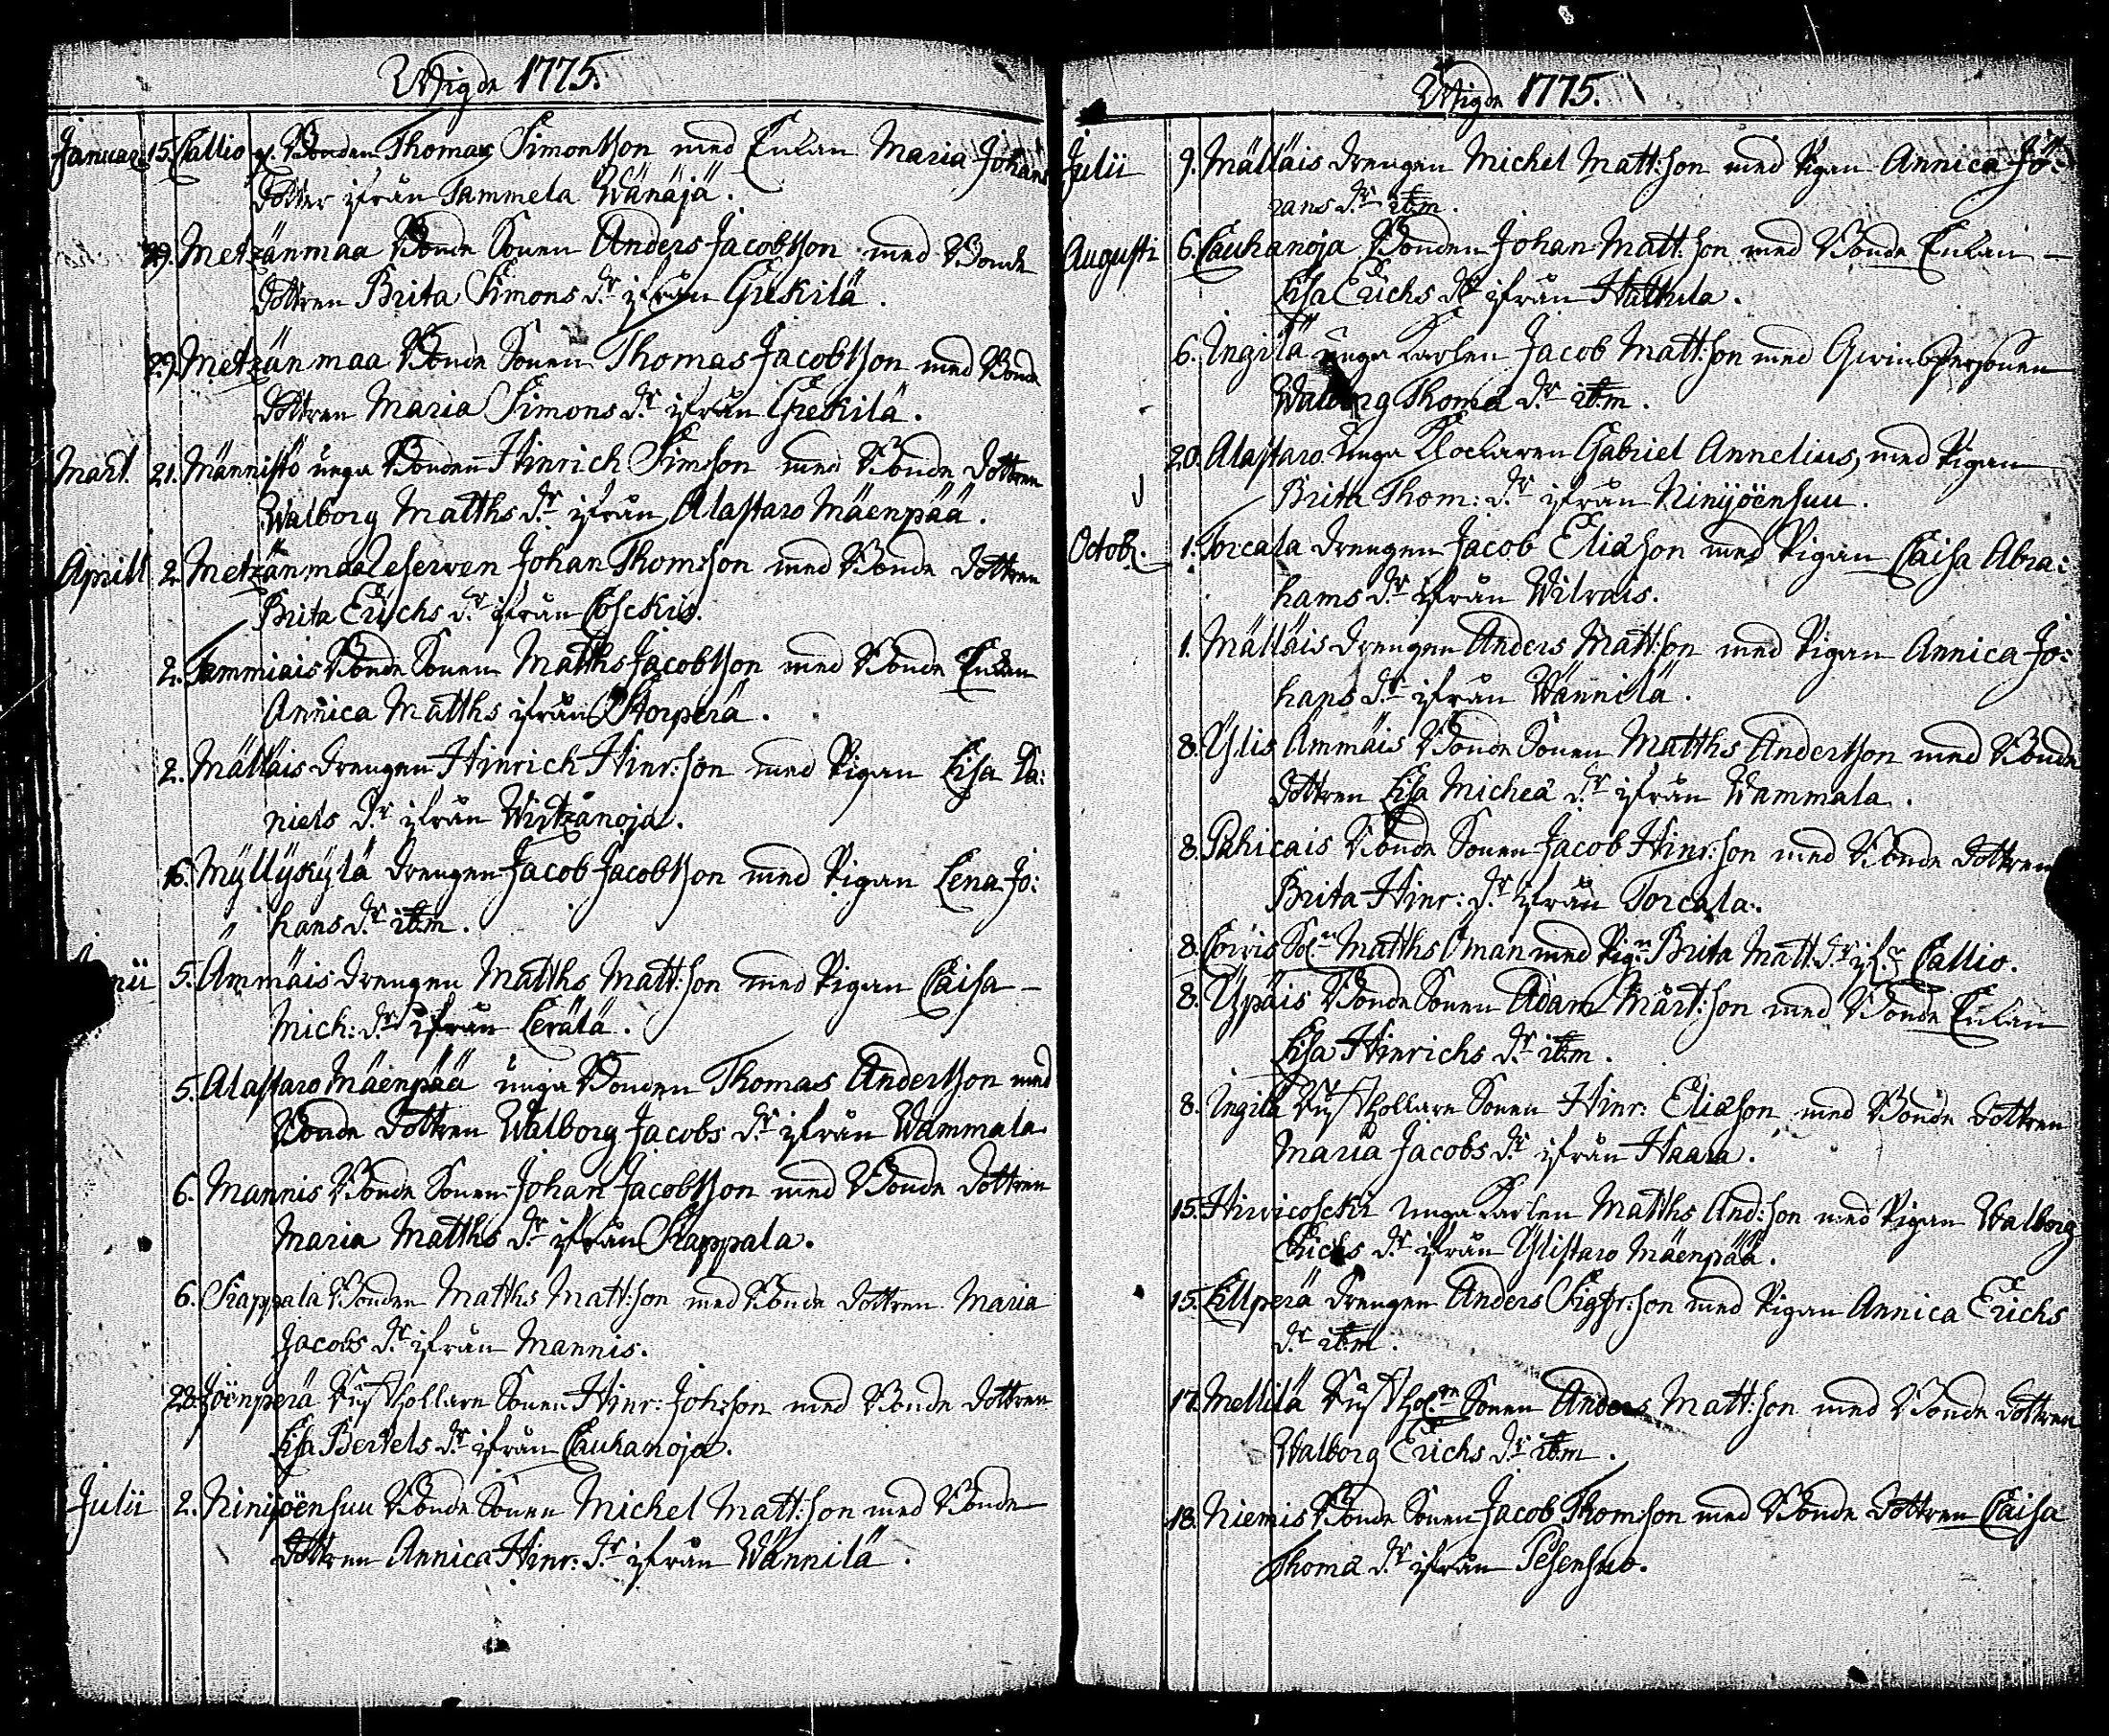 Wigde 1775.
Januar. 15. Callio y. Bonden Thomas Simonsson med Enkan Maria Johans
Dotter ifrån Tammela Wänäjä.
29. Metzänmaa Bonde Sonen Anders Jacobsson med Bonde
Dottren Brita Simons d:r ifrån Grekilä.
29. Metzänmaa Bonde Sonen Thomas Jacobsson med Bonde
Dottren Maria Simons d:r ifrån Grekilä.
Mart. 21. Männistö unga Bonden Hinrich Simsson med Bonde Dottren
Walborg Matths d:r ifrån Alastaro Mäenpää.
Aprill 2. Metzänmaa Reserven Johan Thomsson med Bonde Dottren
Brita Erichs d:r ifrån Coskis.
2. Tammiais Bonde Sonen Matths Jacobsson med Bonde Enkan
Annica Matths ifrån Storperä.
2. Mälläis Drengen Hinrich Hinr:son med Pigan Lisa Da:
niels d:r ifrån Wirtzanoja.
16. Myllykylä Drengen Jacob Jacobsson med Pigan Lena Jo:
hans d:r ib:m.
nii 5. Ämmäis Drengen Matths Matt:son med Pigan Caisa
Mich: d:r ifrån Lerälä.
5. Alastaro Mäenpää unga Bonden Thomas Andersson med
Bonde Dottren Walborg Jacobs d:r ifrån Wammala.
6. Mannis Bonde Sonen Johan Jacobsson med Bonde Dottren
Maria Matths d:r ifrån Krappala.
6. Krappala Bonden Matths Matt:son med Bonde Dottren Maria
Jacobs d:r ifrån Mannis.
28. Joenperä Rusthollare Sonen Hinr: Johsson med Bonde Dottren
Lisa Bertels d:r ifrån Cauhanoja.
Julii 2. Ninijoensuu Bonde Sonen Michel Matt:son med Bonde
Dottren Annica Hinr: d:r ifrån Wännilä.
Wigde 1775.
Julii 9. Mälläis Drengen Michel Matt:son med Pigan Annica Jö:
rans d:r ib:m.
Augusti 6. Cauhanoja Bonden Johan Matt:son med Bonde Enkan
Lisa Erichs d:r ifrån Hattula.
6. Ingilä unga Karlen Jacob Matt:son med Qwinspersonen
Walborg Thoma d:r ib:m.
20. Alastaro Unga Klockaren Gabriel Annelius, med Pigan
Brita Thom: d:r ifrån Ninijöensuu.
Octob:r 1. Torcala Drengen Jacob Eliason med Pigan Caisa Abra:
hams d:r ifrån Wilvais.
1. Mälläis Drengen Anders Matt:son med Pigan Annica Jo:
hans d:r ifrån Wännilä.
8. Ylis Ämmäis Bonde Sonen Matths Andersson med Bonde
Dottren Lisa Michea d:r ifrån Wammala.
8. Pahicais Bonde Sonen Jacob Hinr:son med Bonde Dottren
Brita Hinr: d:r ifrån Torcala.
8. Corvis Sol:n Matths Öman med Pig:n Brita Matt: d:r if:n Callio.
8. Ypäis Bonde Sonen Adam Märt:son med Bonde Enkan
Lisa Hinrichs d:r ib:m.
8. Ingilä Rusthollare Sonen Hinr: Eliason med Bonde Dottren
Maria Jacobs d:r ifrån Haara.
15. Hirvicoscki unga Karlen Matths And:son med Pigan Walborg
Erichs d:r ifrån Ylistaro Mäenpää.
15. Killperä Drengen Anders Sigfr:son med Pigan Annica Erichs
d:r ib:m.
17. Mellilä Rusthol:rn Sonen Anders Matt:son med Bonde Dottren
Walborg Erichs d:r ib:m.
18. Niemis Bonde Sonen Jacob Thomsson med Bonde Dottren Caisa
Thoma d:r ifrån Pesensuo.